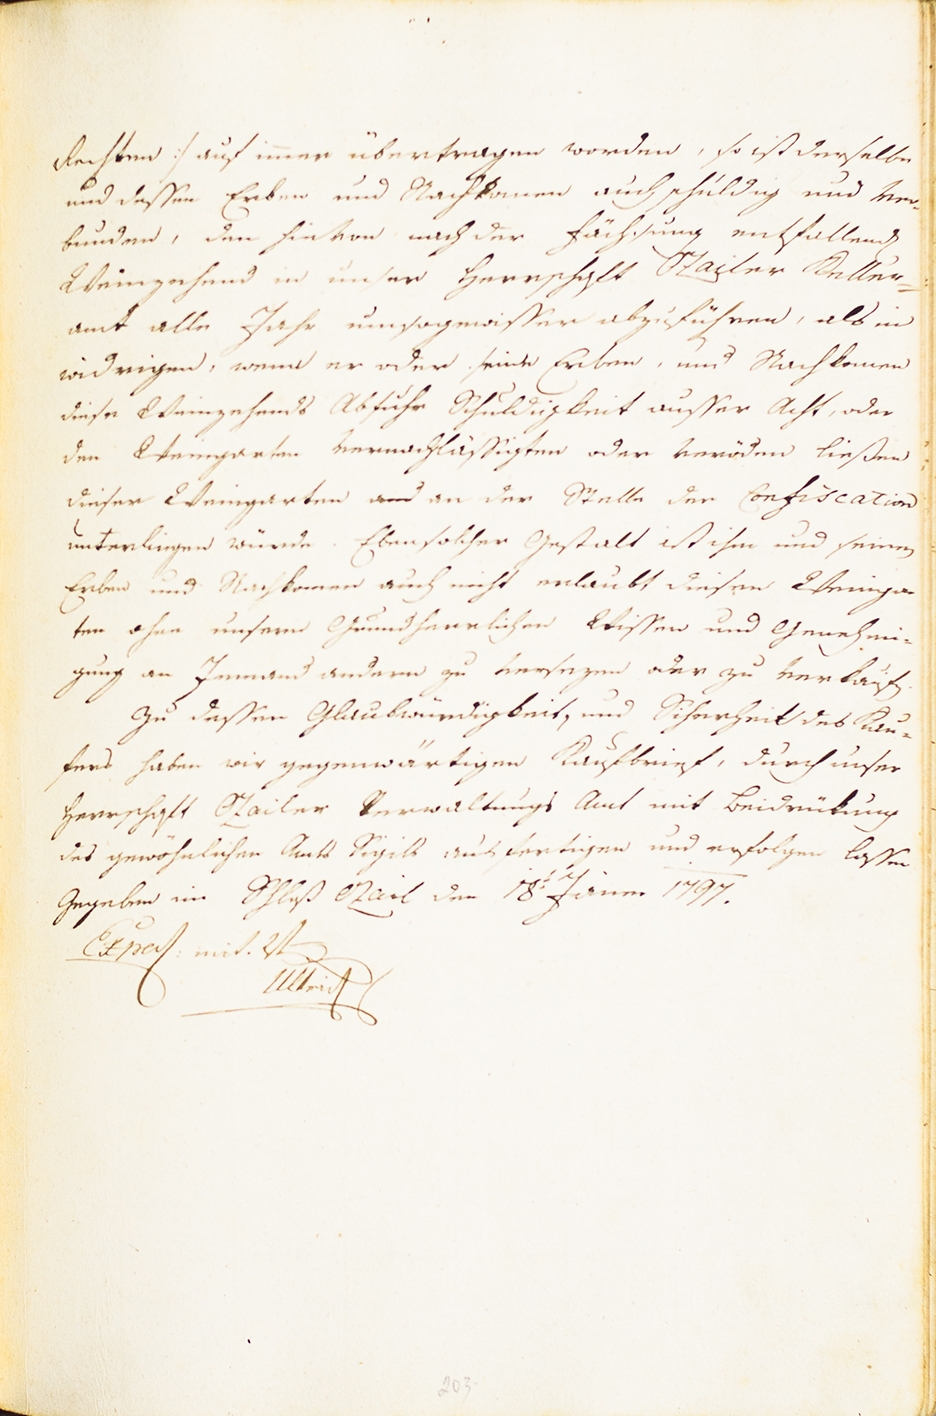 Rechten :/ auf immer übertragen worden, so ist derselbe
und dessen Erben und Nachkomen auch schuldig und ver-
bunden, den hievon nach der Fächsung entfallend
Weinzehend in unser Herrschaft Stailer Keller-
amt alle Jahr umsogewisser abzuführen, als in
widrigen, wenn er oder seine Erben, und Nachkomen
diese Weinzehends Abfuhr Schuldigkeit ausser Acht, oder
den Weingarten vernachlässigten oder veröden ließen
dieser Weingarten and an der Stelle der Confiscation
unterliegen würde. Ebensolcher Gestalt ist ihm und seinen
Erben und Nachkomen auch nicht erlaubt diesen Weingar
ten ohne unsern Grundherrlichen Wissen und Genehmi-
gung an Jemand andern zu versezen oder zu verkaufen.
Zu dessen Glaubwürdigkeit, und Sicherheit des Kau-
fers haben wir gegenwärtigen Kaufbrief, durch unser
Herrschaft Stailer Verwaltungs Amt mit Beidrükung
des gewöhnlichen Amts Sigils ausfertigen und erfolgen lassen
Gegeben im Schloß Stail den 18t Jäner 1797.
Exped:
Ullrich
203